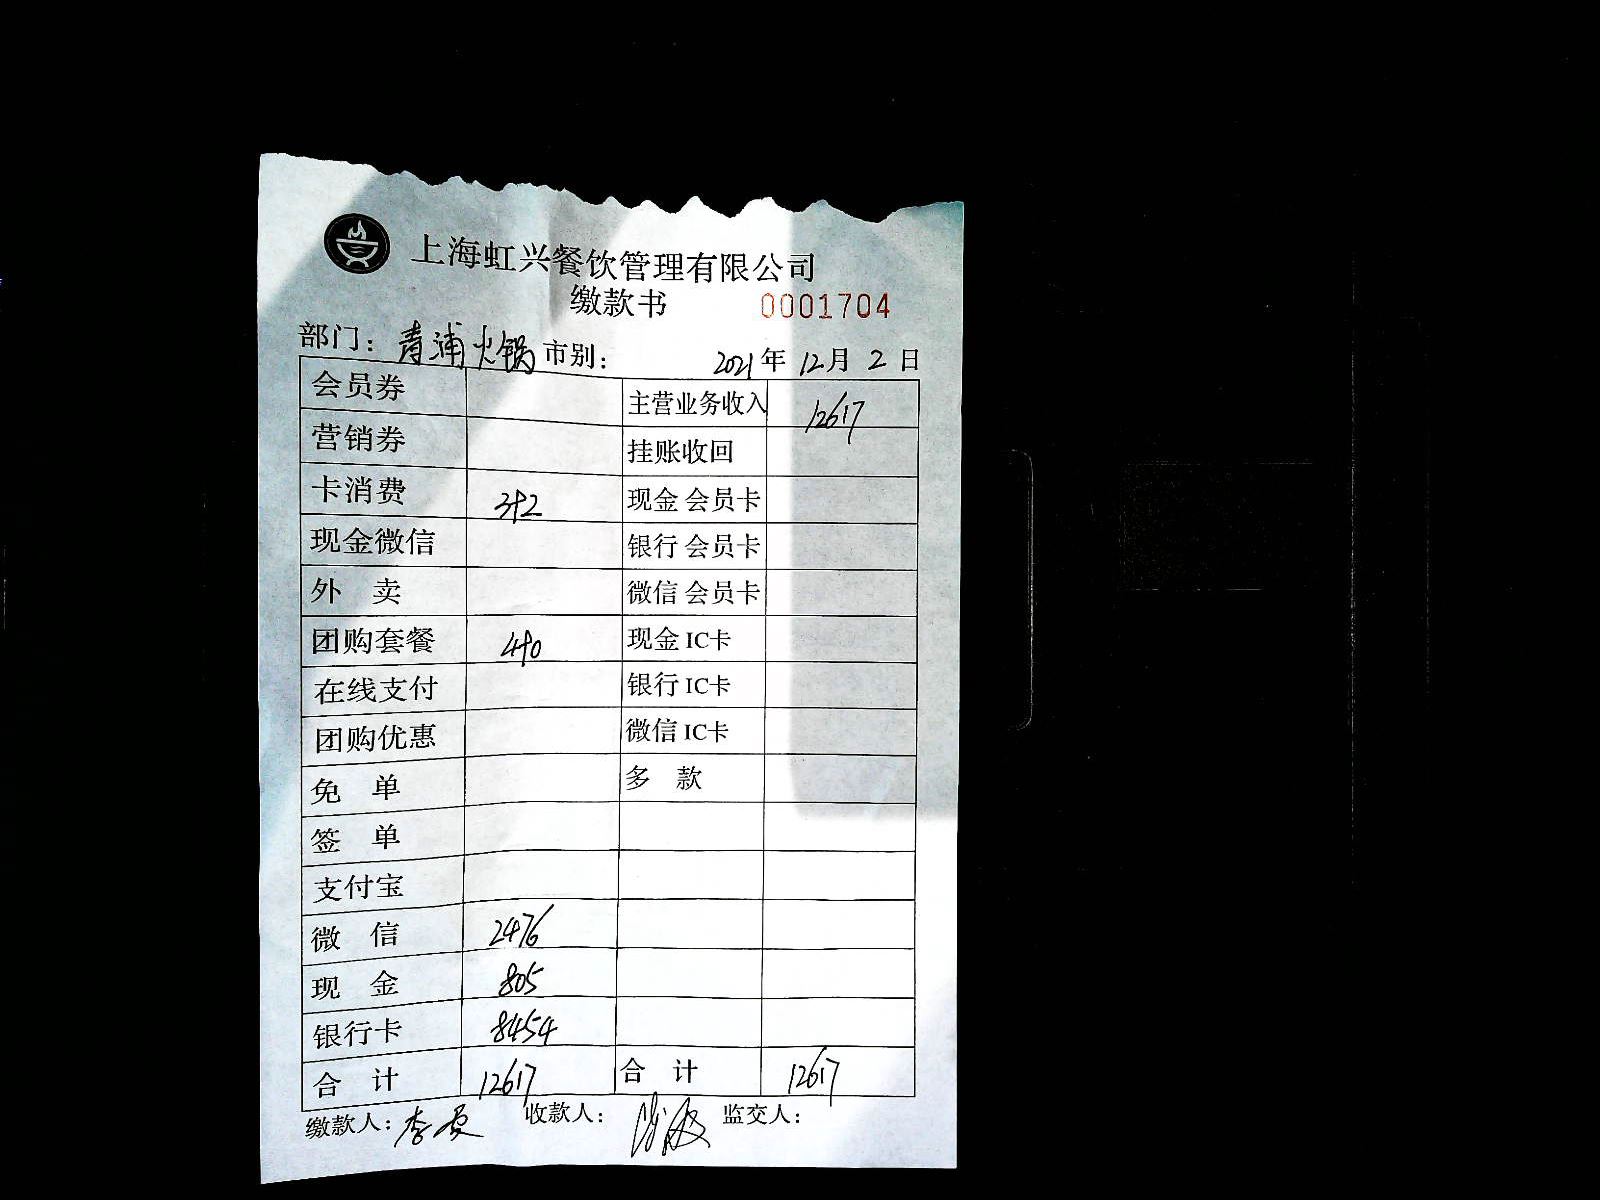 上海虹兴餐饮管理有限公司
缴款书 0001704
部门：青浦火锅 市别： 2021年12月2日
会员券 主营业务收入 12617
营销券 挂账收回
卡消费 392 现金 会员卡
现金微信 银行 会员卡
外 卖 微信 会员卡
团购套餐 490 现金 IC卡
在线支付 银行 IC卡
团购优惠 微信 IC卡
免 单 多 款
签 单
支付宝
微 信 2476
现 金 805
银行卡 8454
合 计 12617 合 计 12617
缴款人：李 收款人： 监交人：